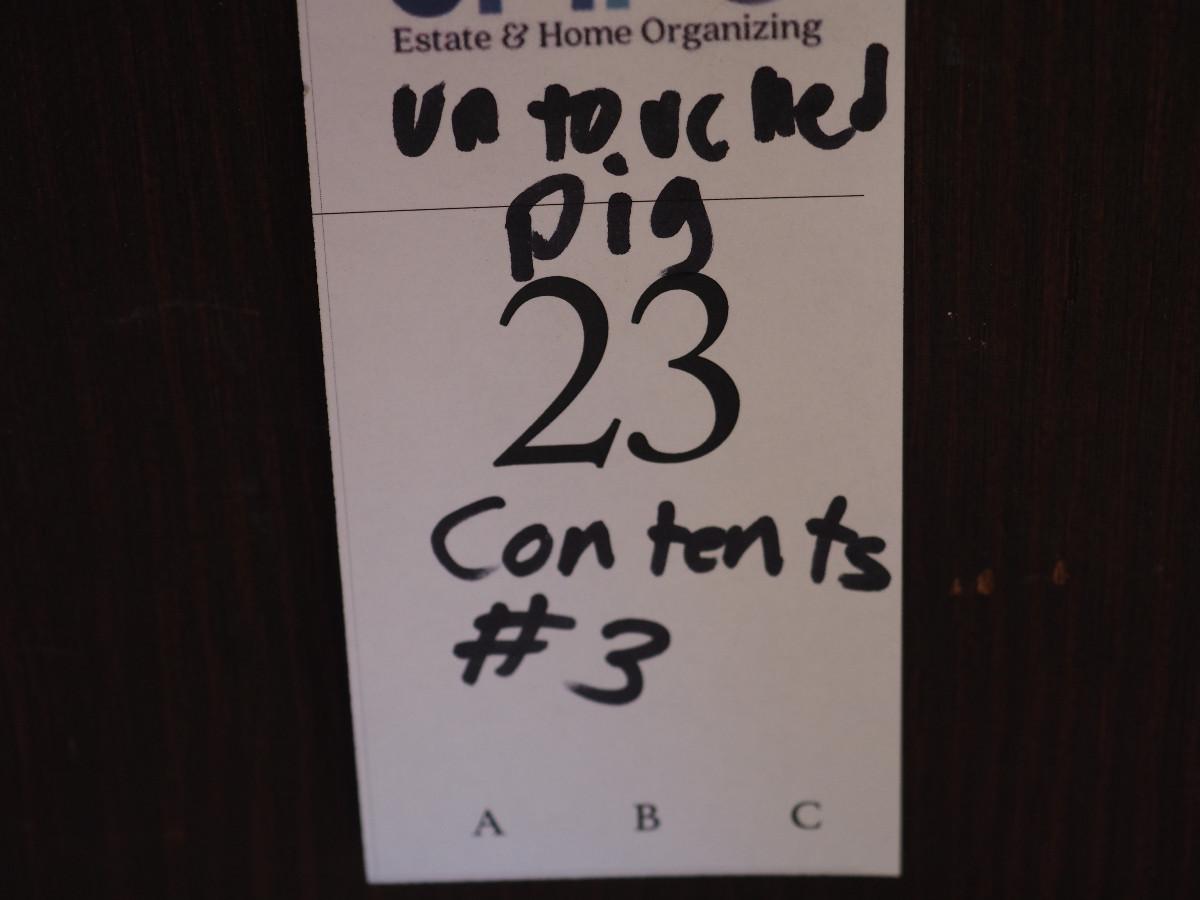 Estate & Home Organizing
untouched
Dig
23
Contents
#3
A B C